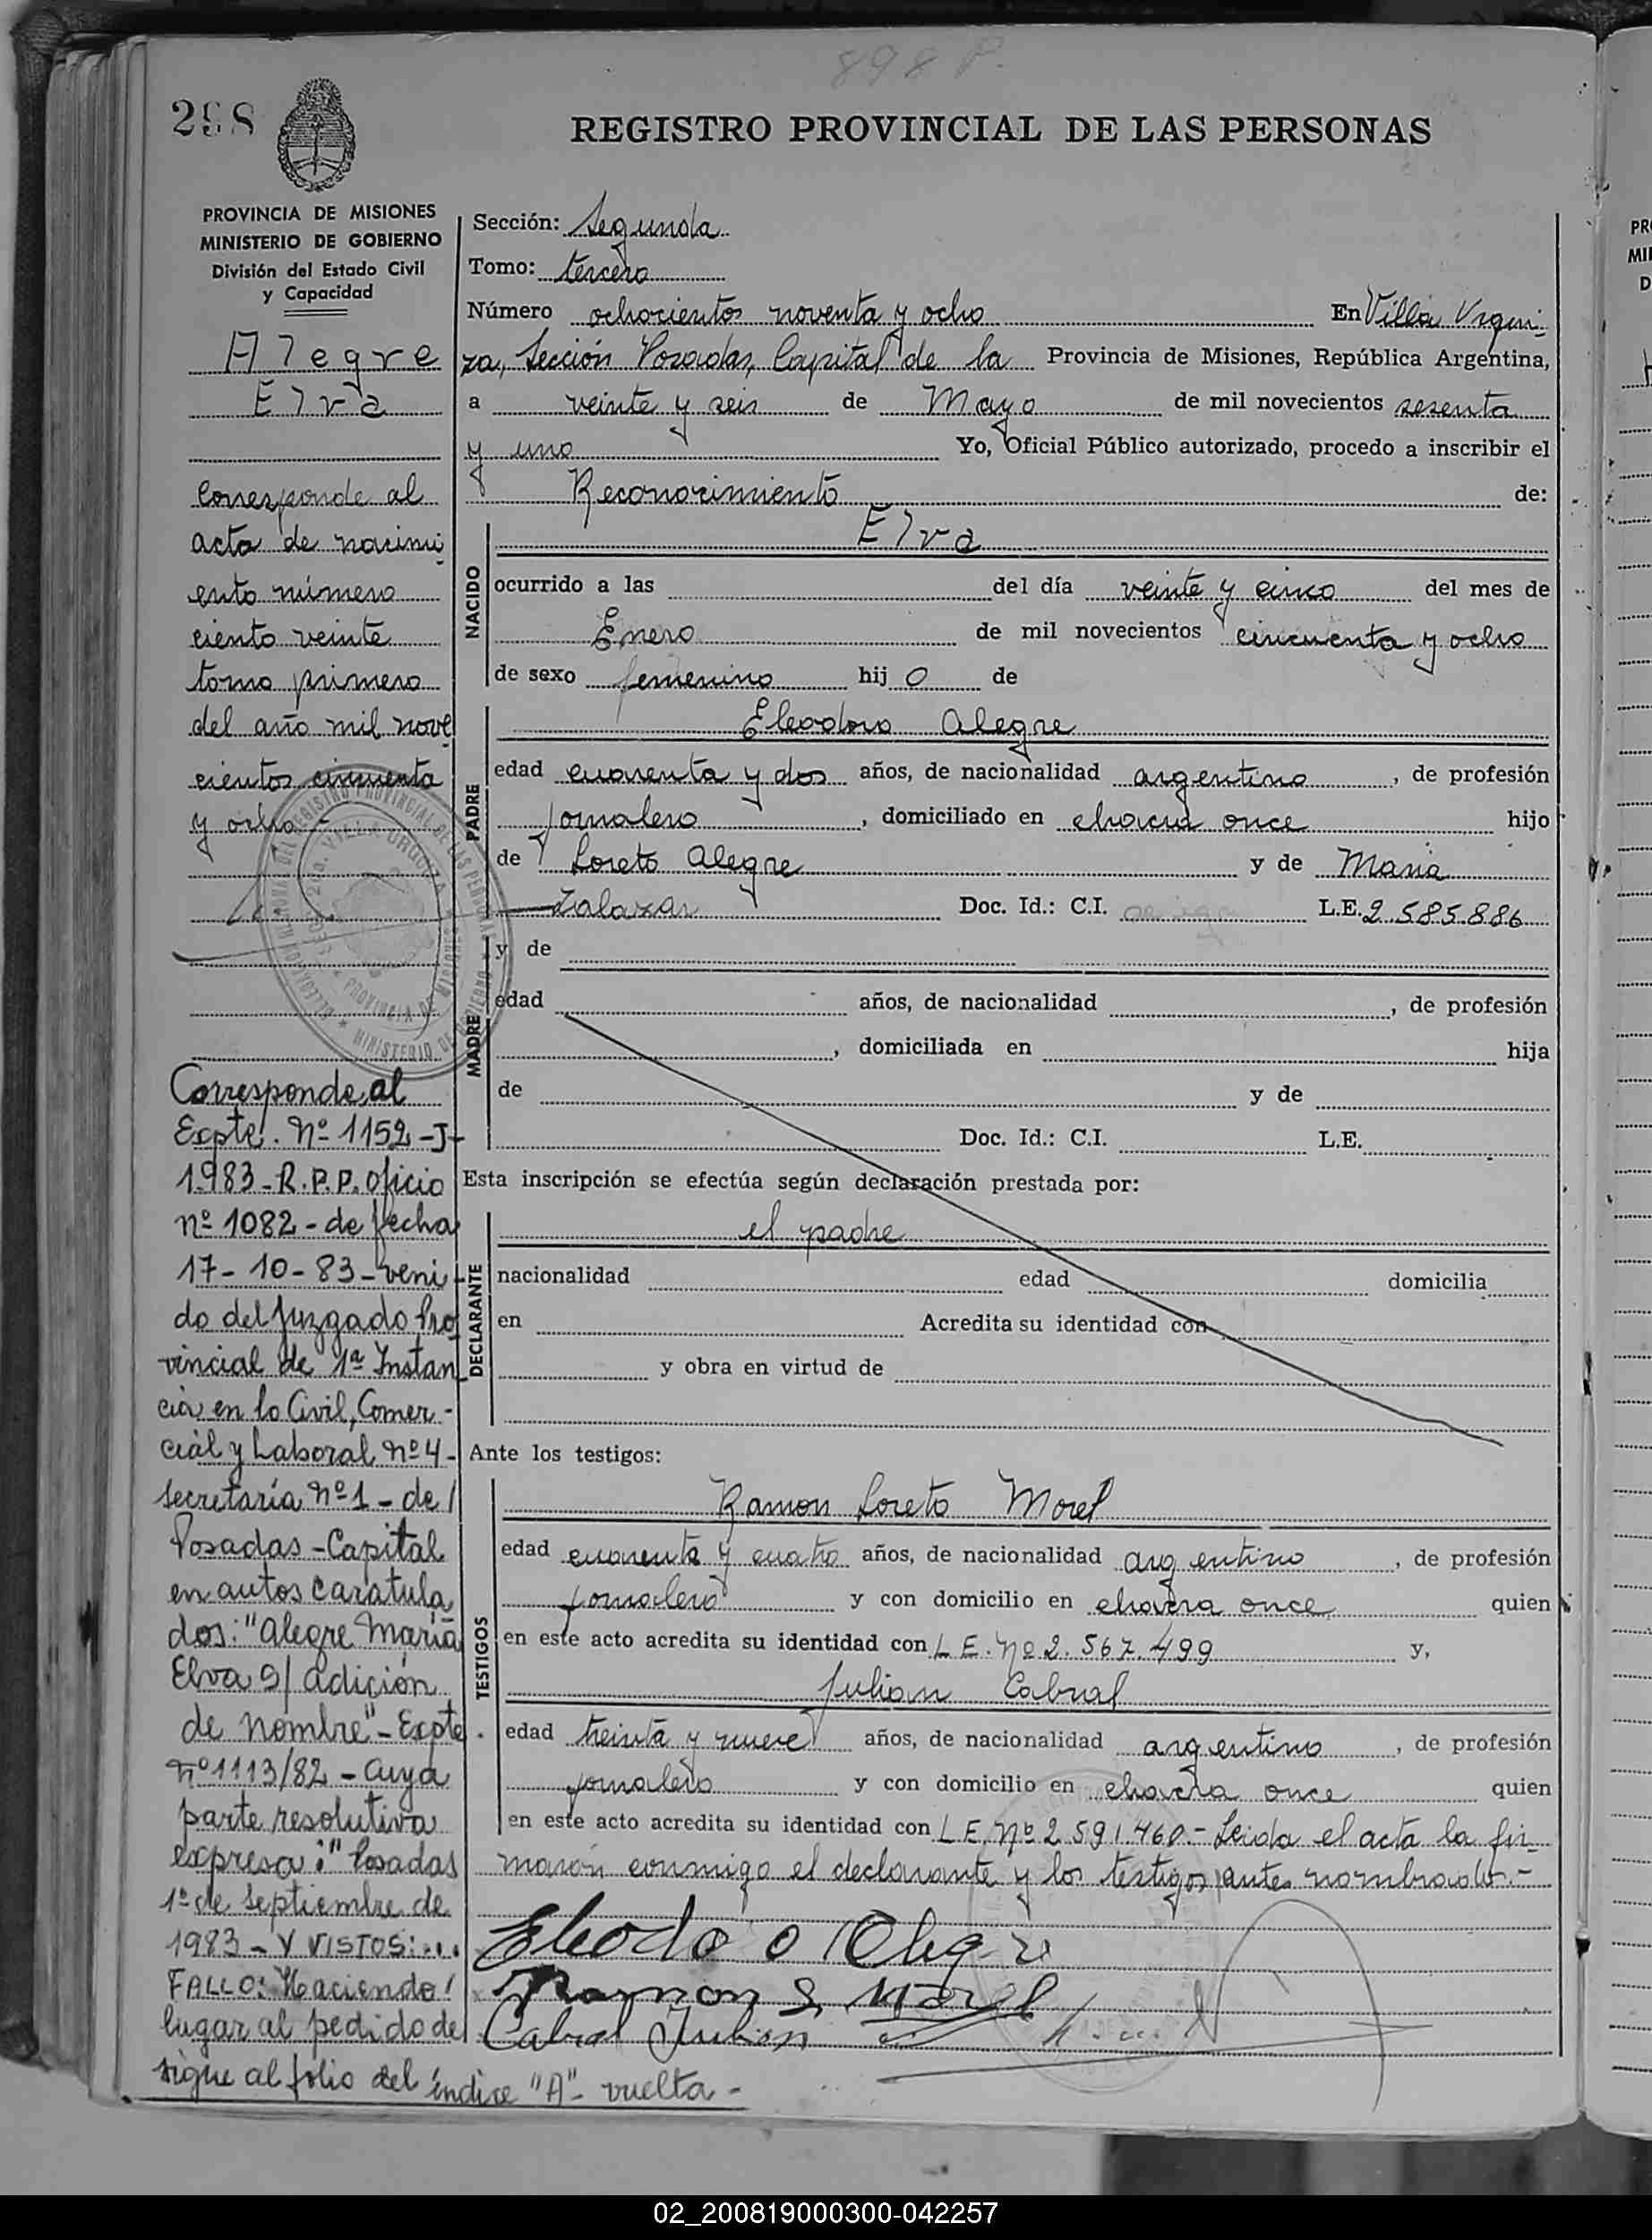 898 P.
298
REGISTRO PROVINCIAL DE LAS PERSONAS
PROVINCIA DE MISIONES
MINISTERIO DE GOBIERNO
División del Estado Civil
y Capacidad
Alegre
Elva
Corresponde al
acta de nacimi
ento número
ciento veinte
tomo primero
del año mil nove
cientos cincuenta
y ocho
Corresponde al
Expte. Nº 1152-J-
1983-R.P.P. Oficio
nº 1082 - de fecha
17-10-83 - veni
do del Juzgado Pro
vincial de 1ª Instan
cia en lo Civil, Comer-
cial y Laboral nº 4-
Secretaría Nº 1 - de /
Posadas - Capital
en autos caratula
dos: "Alegre María
Elva s/ Adición
de Nombre" - Expte.
nº 1113/82 - Cuya
parte resolutiva
expresa: "Posadas
1º de Septiembre de
1983 - Y VISTOS: ...
FALLO: Haciendo /
lugar al pedido de
sigue al folio del índice "A" - vuelta -
Sección: Segunda
Tomo: tercero
Número ochocientos noventa y ocho En Villa Urqui-
za, Sección Posadas, Capital de la Provincia de Misiones, República Argentina,
a veinte y seis de Mayo de mil novecientos sesenta
y uno Yo, Oficial Público autorizado, procedo a inscribir el
Reconocimiento de:
NACIDO
Elva
ocurrido a las del día veinte y cinco del mes de
Enero de mil novecientos cincuenta y ocho
de sexo femenino hij o de
PADRE
Eleodoro Alegre
edad cuarenta y dos años, de nacionalidad argentino, de profesión
jornalero, domiciliado en chacra once hijo
de Loreto Alegre y de Maria
Zalazar Doc. Id.: C.I. L.E. 2.585.886
MADRE
y de
edad años, de nacionalidad , de profesión
, domiciliada en hija
de y de
Doc. Id.: C.I. L.E.
Esta inscripción se efectúa según declaración prestada por:
DECLARANTE
el padre
nacionalidad edad domicilia
en Acredita su identidad con
y obra en virtud de
Ante los testigos:
TESTIGOS
Ramon Loreto Morel
edad cuarenta y cuatro años, de nacionalidad argentino, de profesión
jornalero y con domicilio en chacra once quien
en este acto acredita su identidad con L.E. Nº 2.567.499 y,
Julian Cabral
edad treinta y nueve años, de nacionalidad argentino, de profesión
jornalero y con domicilio en chacra once quien
en este acto acredita su identidad con L.E. Nº 2.591.460.- Leida el acta la fir-
maron conmigo el declarante y los testigos antes nombrados.-
Eleodoro Alegre
Ramon L. Morel
Cabral Julian
02_200819000300-042257